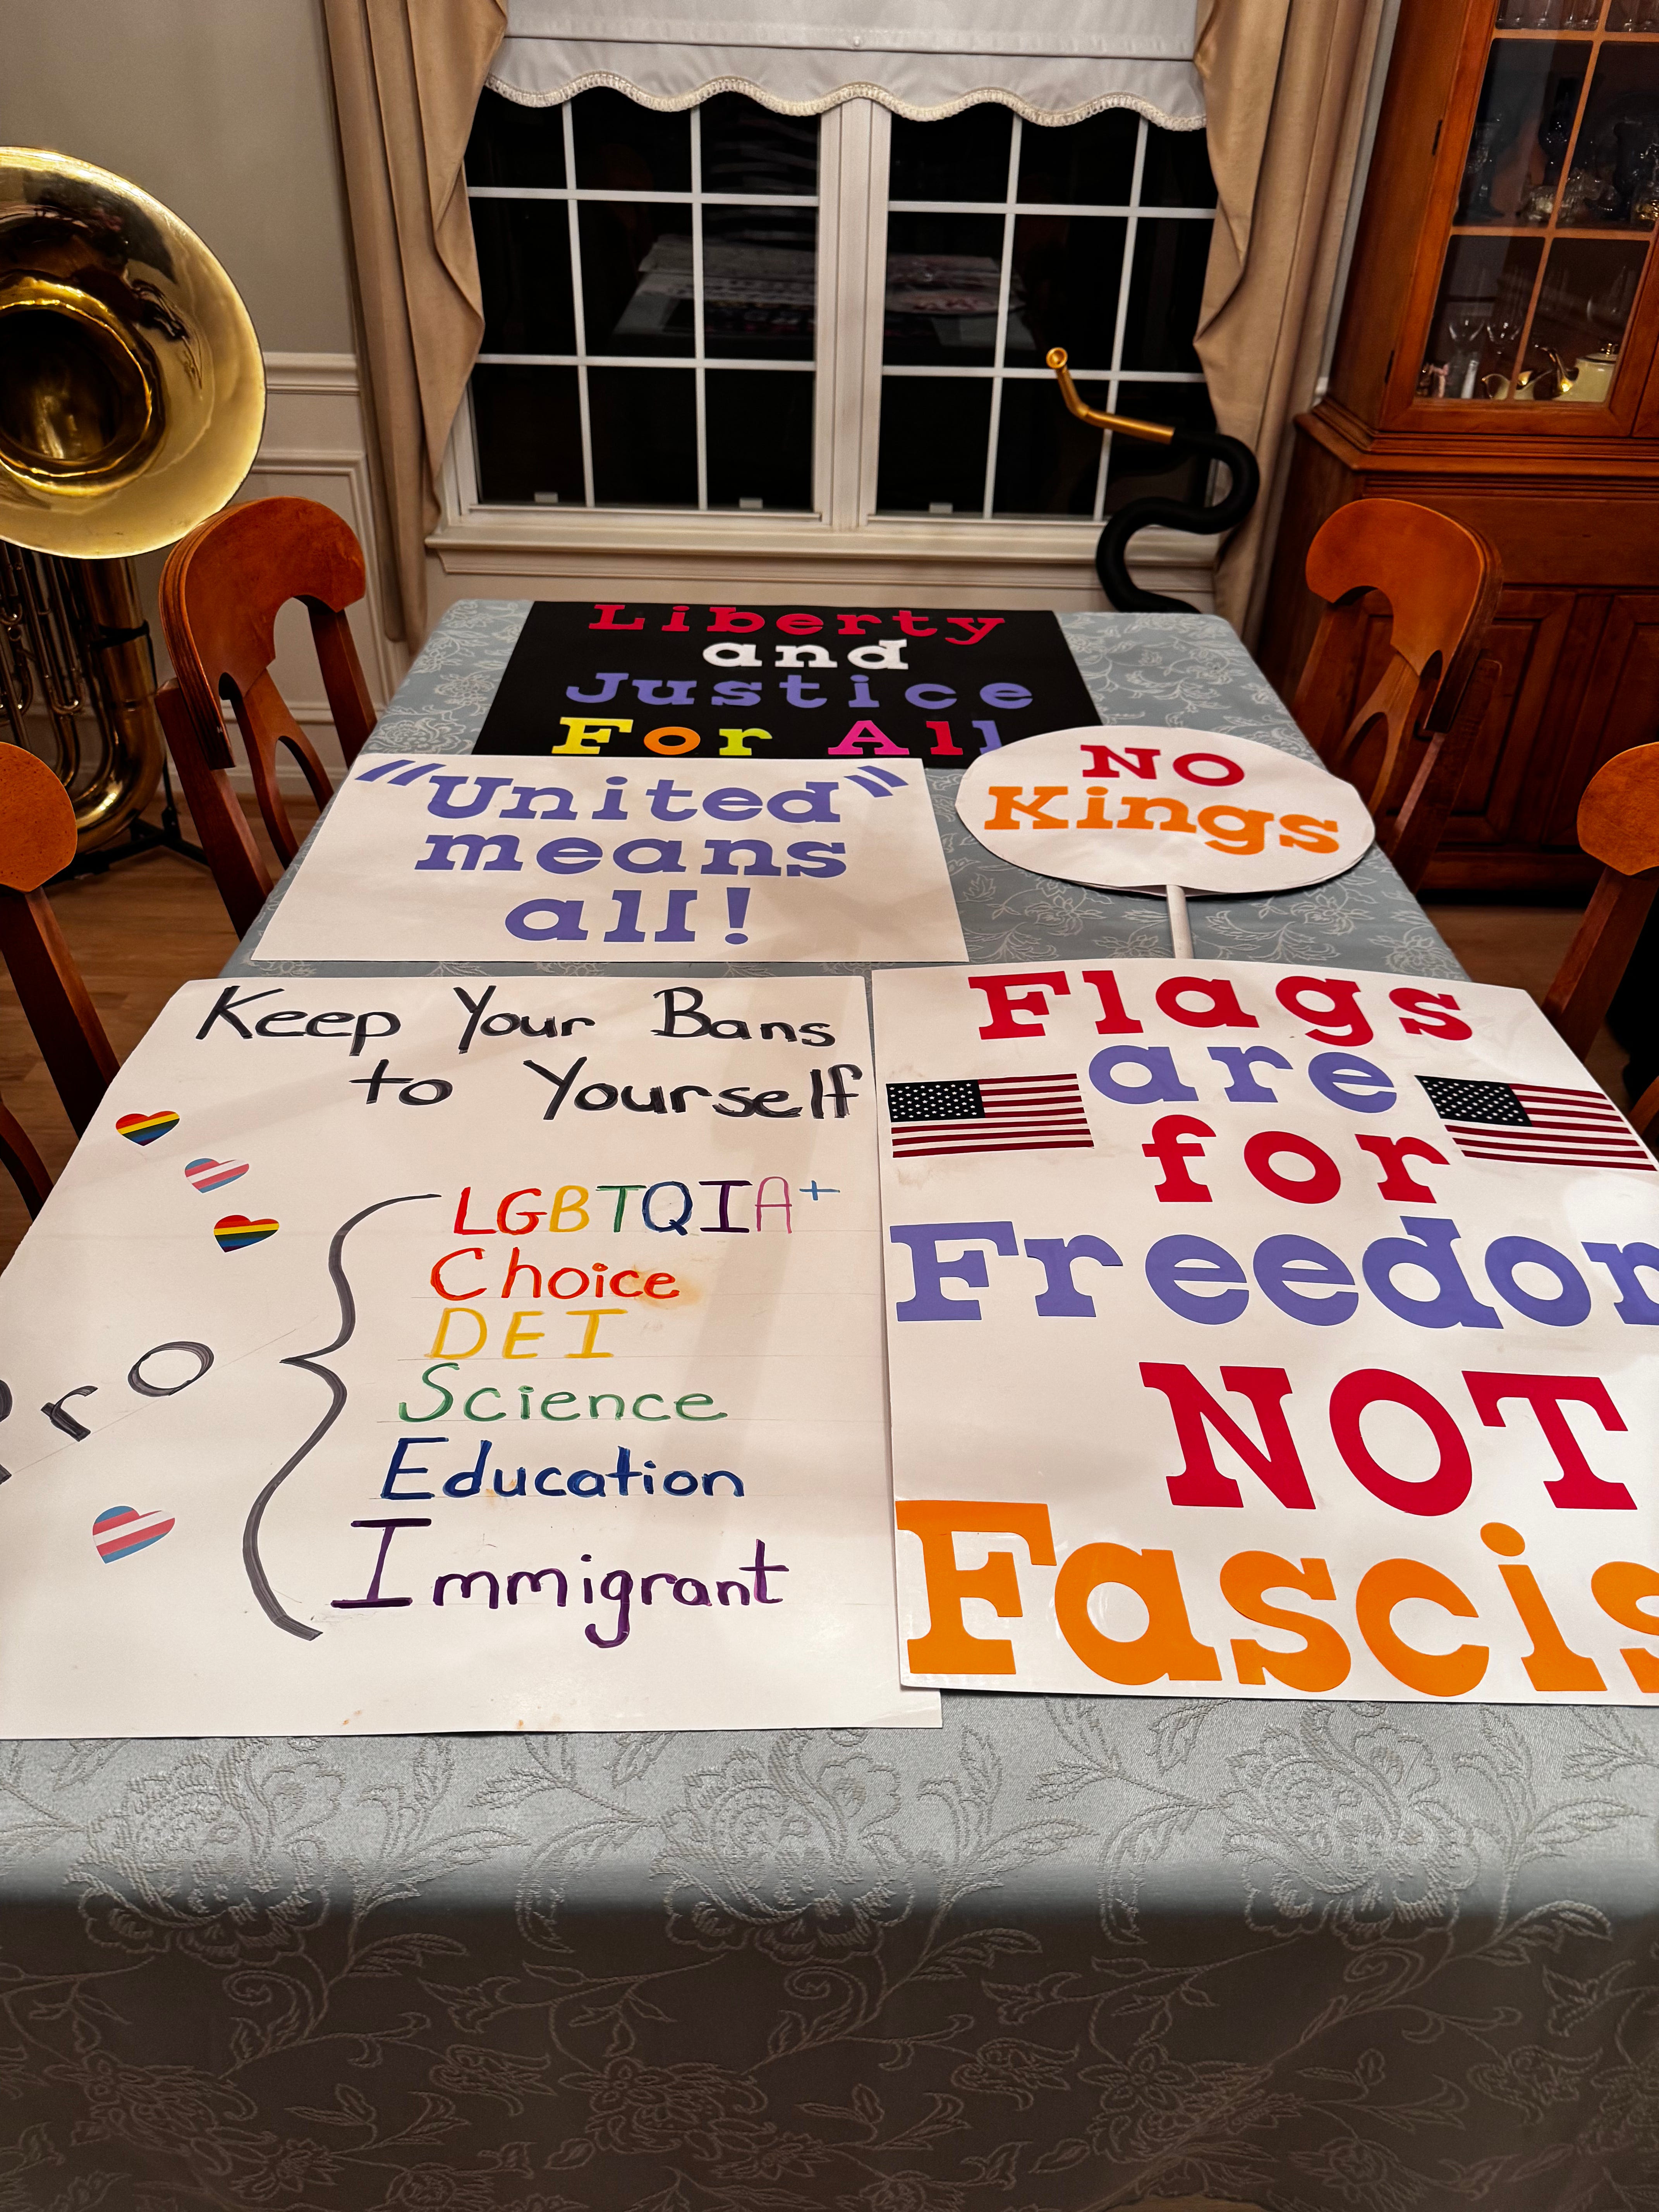 Liberty
and
Justice
For All
"United"
means
all!
NO
Kings
Keep Your Bans
to Yourself
Pro
LGBTQIA+
Choice
DEI
Science
Education
Immigrant
Flags
are
for
Freedom
NOT
Fascis